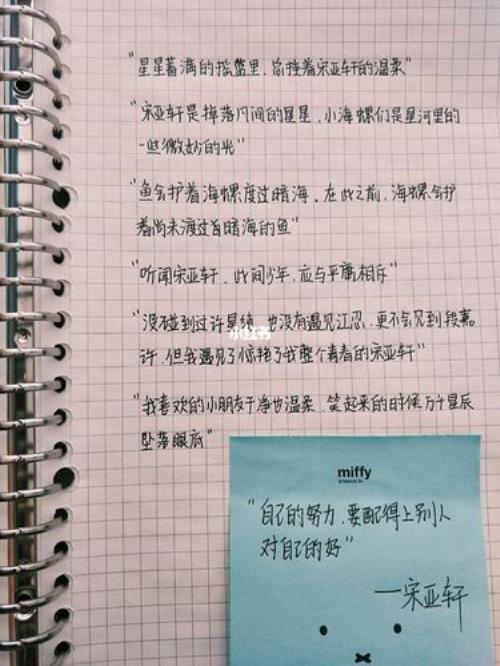 "星星蓄满的摇篮里,总挂着宋亚轩的温柔"
"宋亚轩是掉落凡间的星星,小海螺们是星河里的
一些微妙的光"
"鱼会护着海螺度过暗海,在此之前,海螺会护
着尚未渡过首暗海的鱼"
"听闻宋亚轩,此间少年,应与平庸相斥"
"没碰到过许星纯,也没有遇见江忍,更不会见到段嘉
许,但我遇见了惊艳了我整个青春的宋亚轩"
小红书
"我喜欢的小朋友干净也温柔,笑起来的时候万千星辰
坠落眼底"
miffy
"自己的努力,要配得上别人
对自己的好"
—宋亚轩